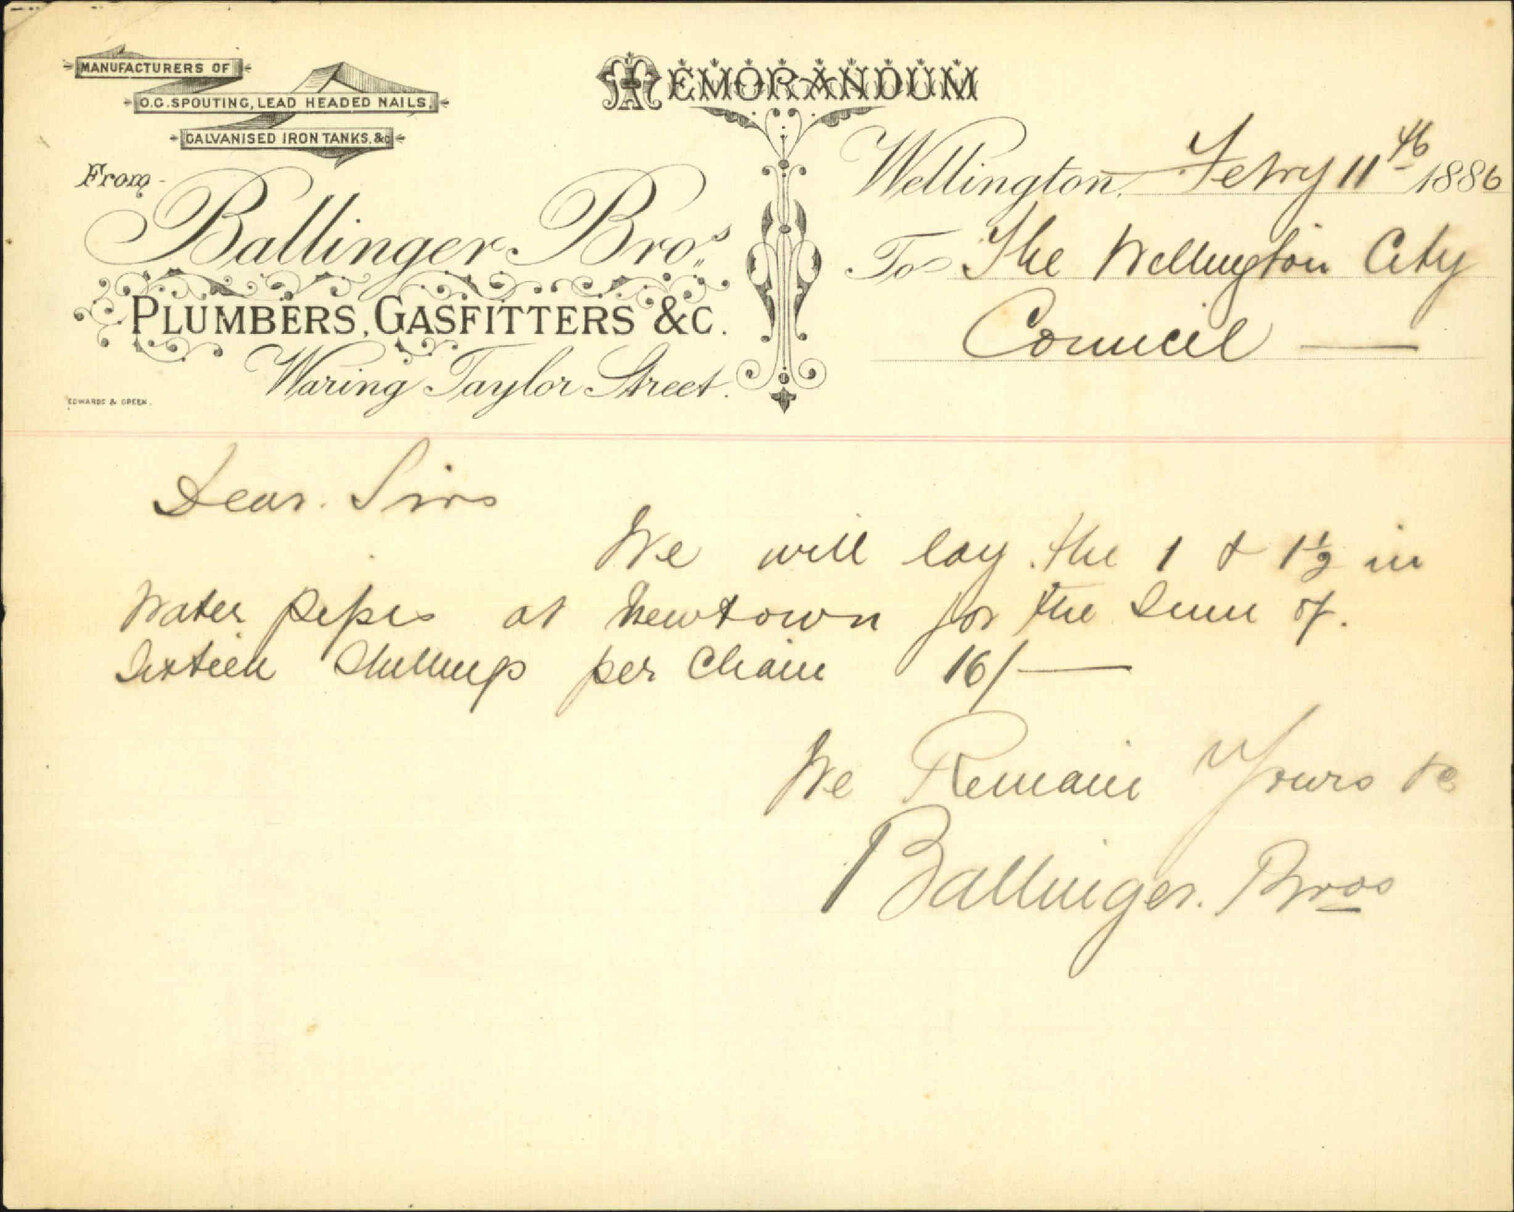 MANUFACTURERS OF
O.G. SPOUTING, LEAD HEADED NAILS,
GALVANISED IRON TANKS, &c
MEMORANDUM
From
Ballinger Bros.
PLUMBERS, GASFITTERS &C.
Waring Taylor Street.
EDWARDS & GREEN.
Wellington, Febry 11th 1886
To The Wellington City
Council —
Dear Sirs
We will lay the 1 & 1½ in
Water pipes at Newtown for the Sum of.
Sixteen Shillings per Chain 16/—
We Remain Yours &c
Ballinger. Bros